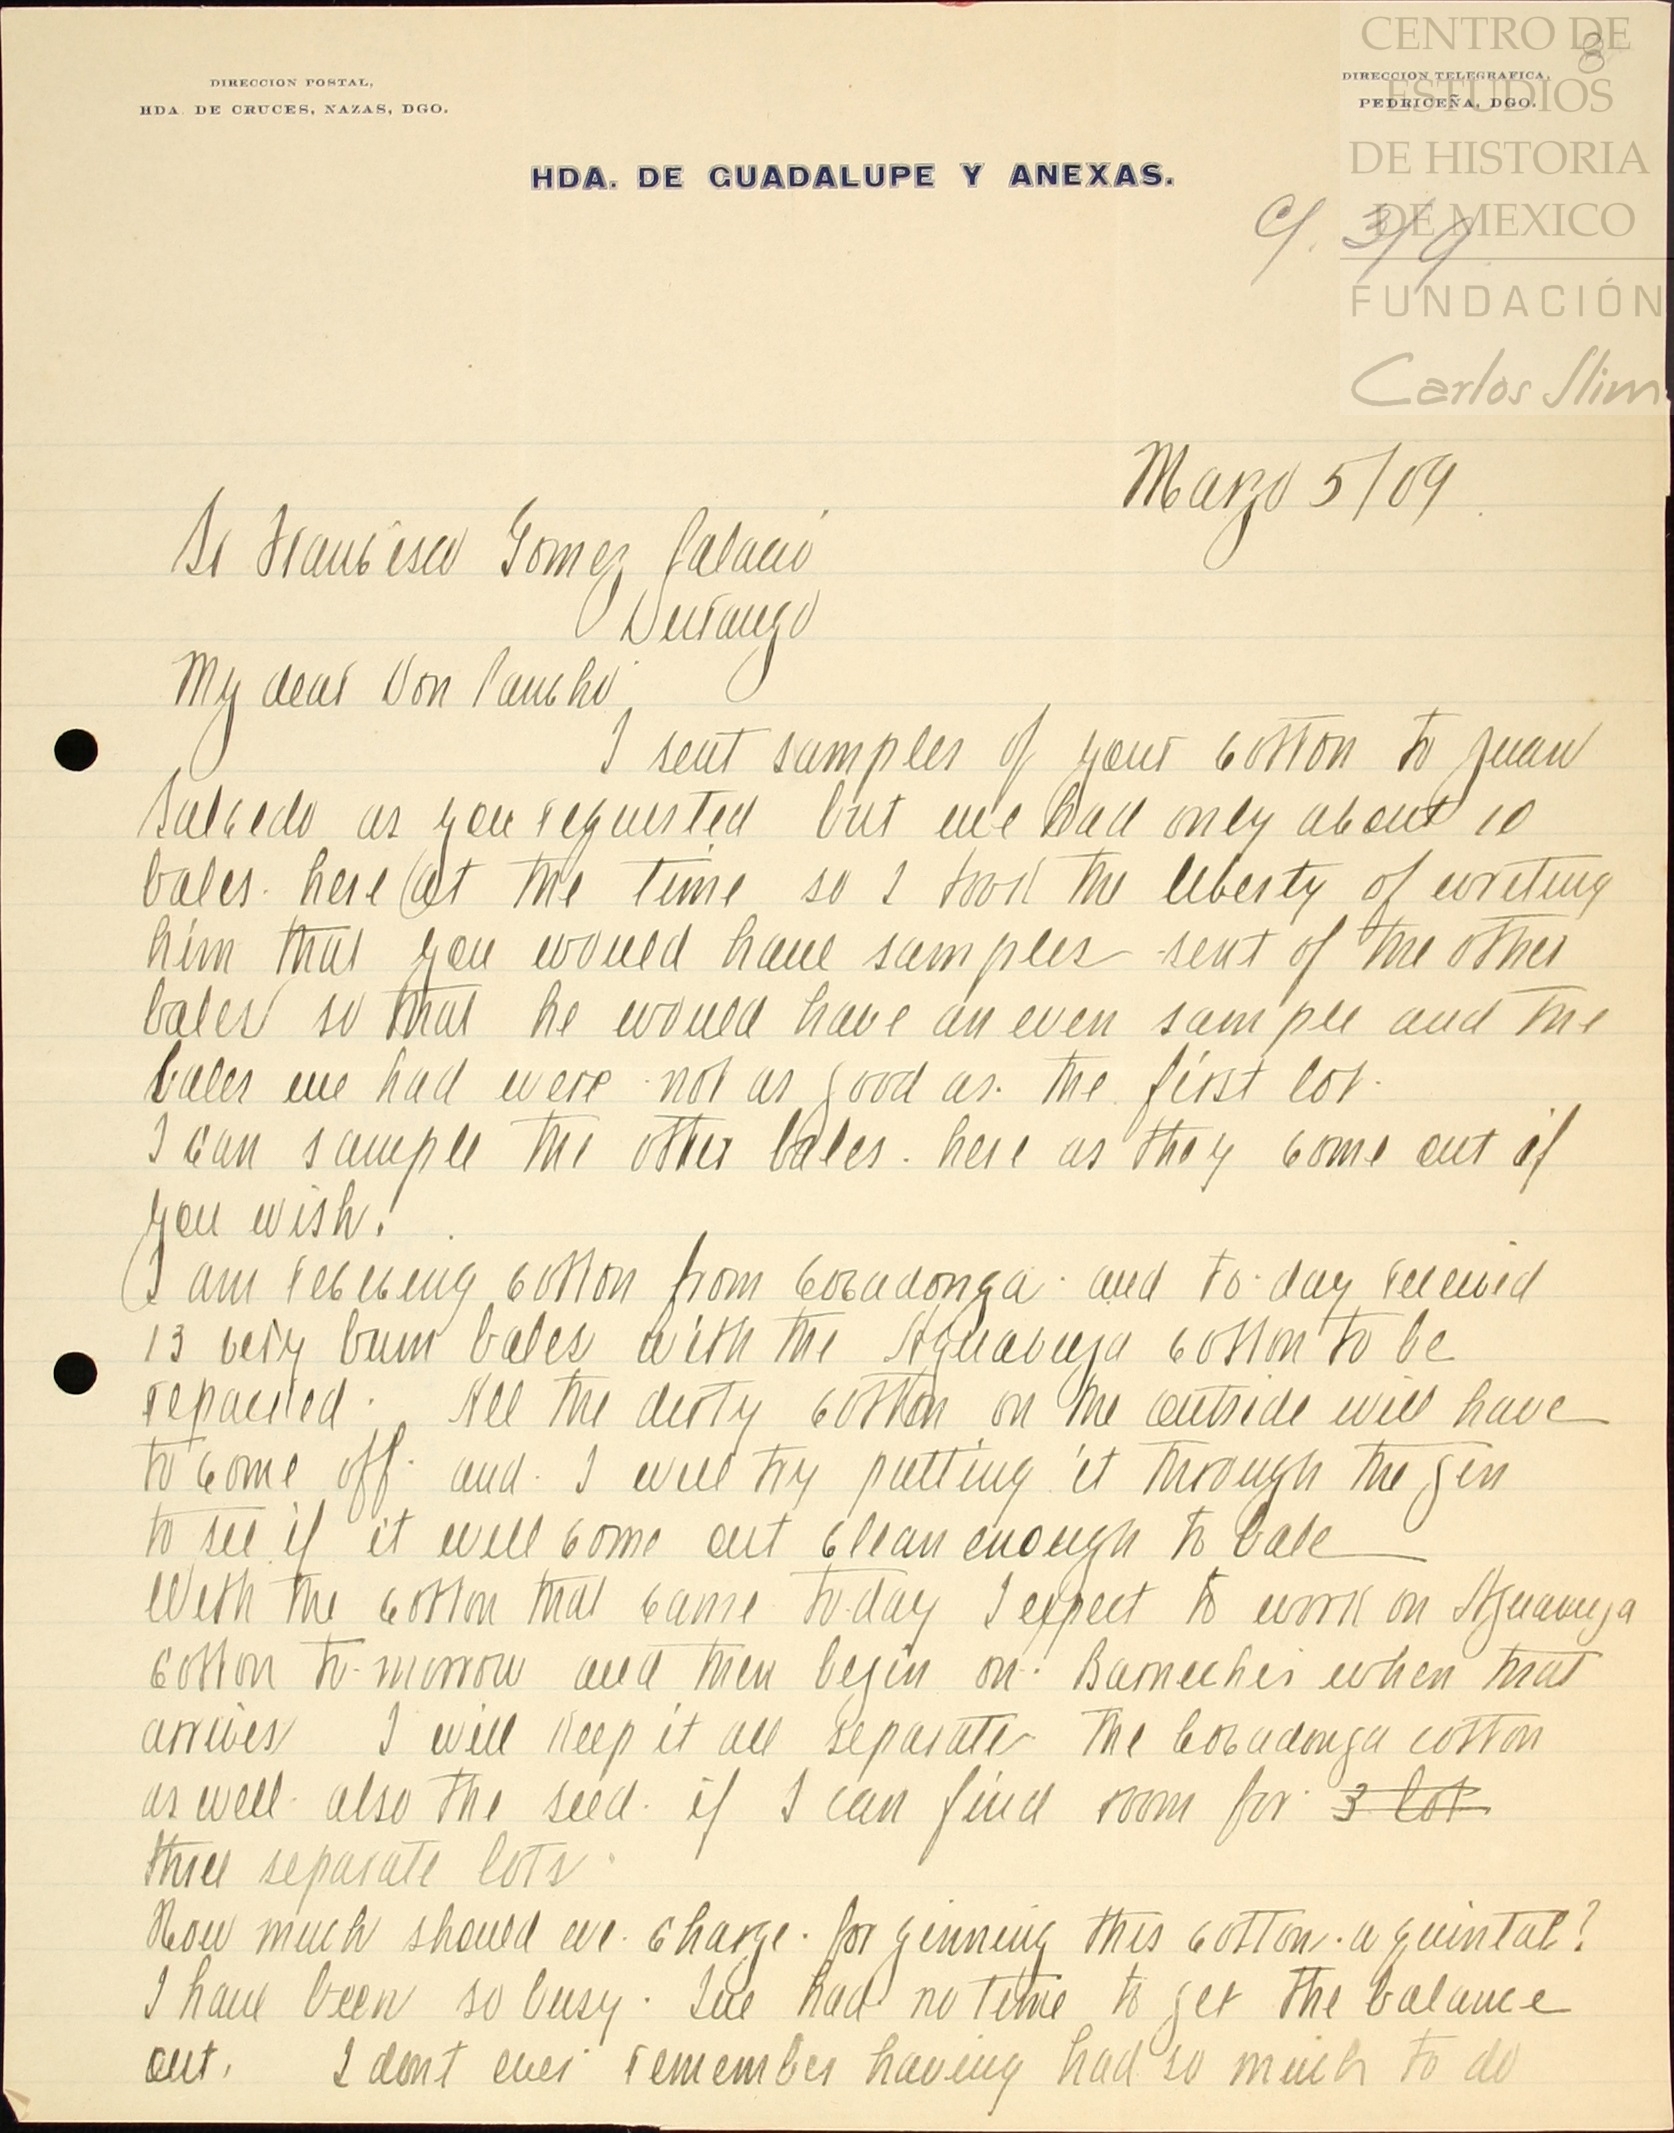 DIRECCION POSTAL,
HDA. DE CRUCES, NAZAS, DGO.
DIRECCION TELEGRAFICA,
PEDRICEÑA, DGO.
CENTRO DE
ESTUDIOS
DE HISTORIA
DE MEXICO
FUNDACIÓN
Carlos Slim
8
HDA. DE GUADALUPE Y ANEXAS.
C/. 3/9
Marzo 5/09
Sr Francisco Gomez Palacio
Durango
My dear Don Pancho
I sent samples of your cotton to Juan
Salcedo as you requested but we had only about 10
bales here at the time so I took the liberty of writing
him that you would have samples sent of the other
bales so that he would have an even sample and the
bales we had were not as good as the first lot.
I can sample the other bales here as they come out if
you wish.
I am receiving cotton from Covadonga and to-day received
13 very bum bales with the cotton to be
repacked. All the dirty cotton on the outside will have
to come off and I will try putting it through the gin
to see if it will come out clean enough to bale
With the cotton that came to-day I expect to work on
cotton to-morrow and then begin on when that
arrives I will keep it all separate The Covadonga cotton
as well also the seed if I can find room for 3 lot
three separate lots.
How much should we charge for ginning this cotton a quintal?
I have been so busy. Ive had no time to get the balance
out. I dont ever remember having had so much to do